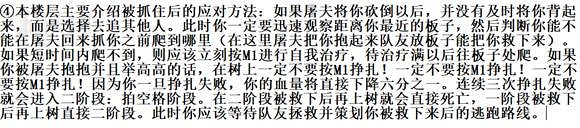 ④本楼层主要介绍被抓住后的应对方法：如果屠夫将你砍倒以后，并没有及时将你背起
来，而是选择去追其他人。此时你一定要迅速观察距离你最近的板子，然后判断你能不
能在屠夫回来抓你之前爬到哪里（在这里屠夫把你抱起来队友放板子能把你救下来）。
如果短时间内爬不到，则应该立刻按M1进行自我治疗，待治疗满以后往板子处爬。如果
你被屠夫抱抱并且举高高的话，在树上一定不要按M1挣扎！一定不要按M1挣扎！一定不
要按M1挣扎！因为你一旦挣扎失败，你的血量将直接下降六分之一。连续三次挣扎失败
就会进入二阶段：拍空格阶段。在二阶段被救下后再上树就会直接死亡，一阶段被救下
后再上树直接二阶段。此时你应该等待队友拯救并策划你被救下来后的逃跑路线。